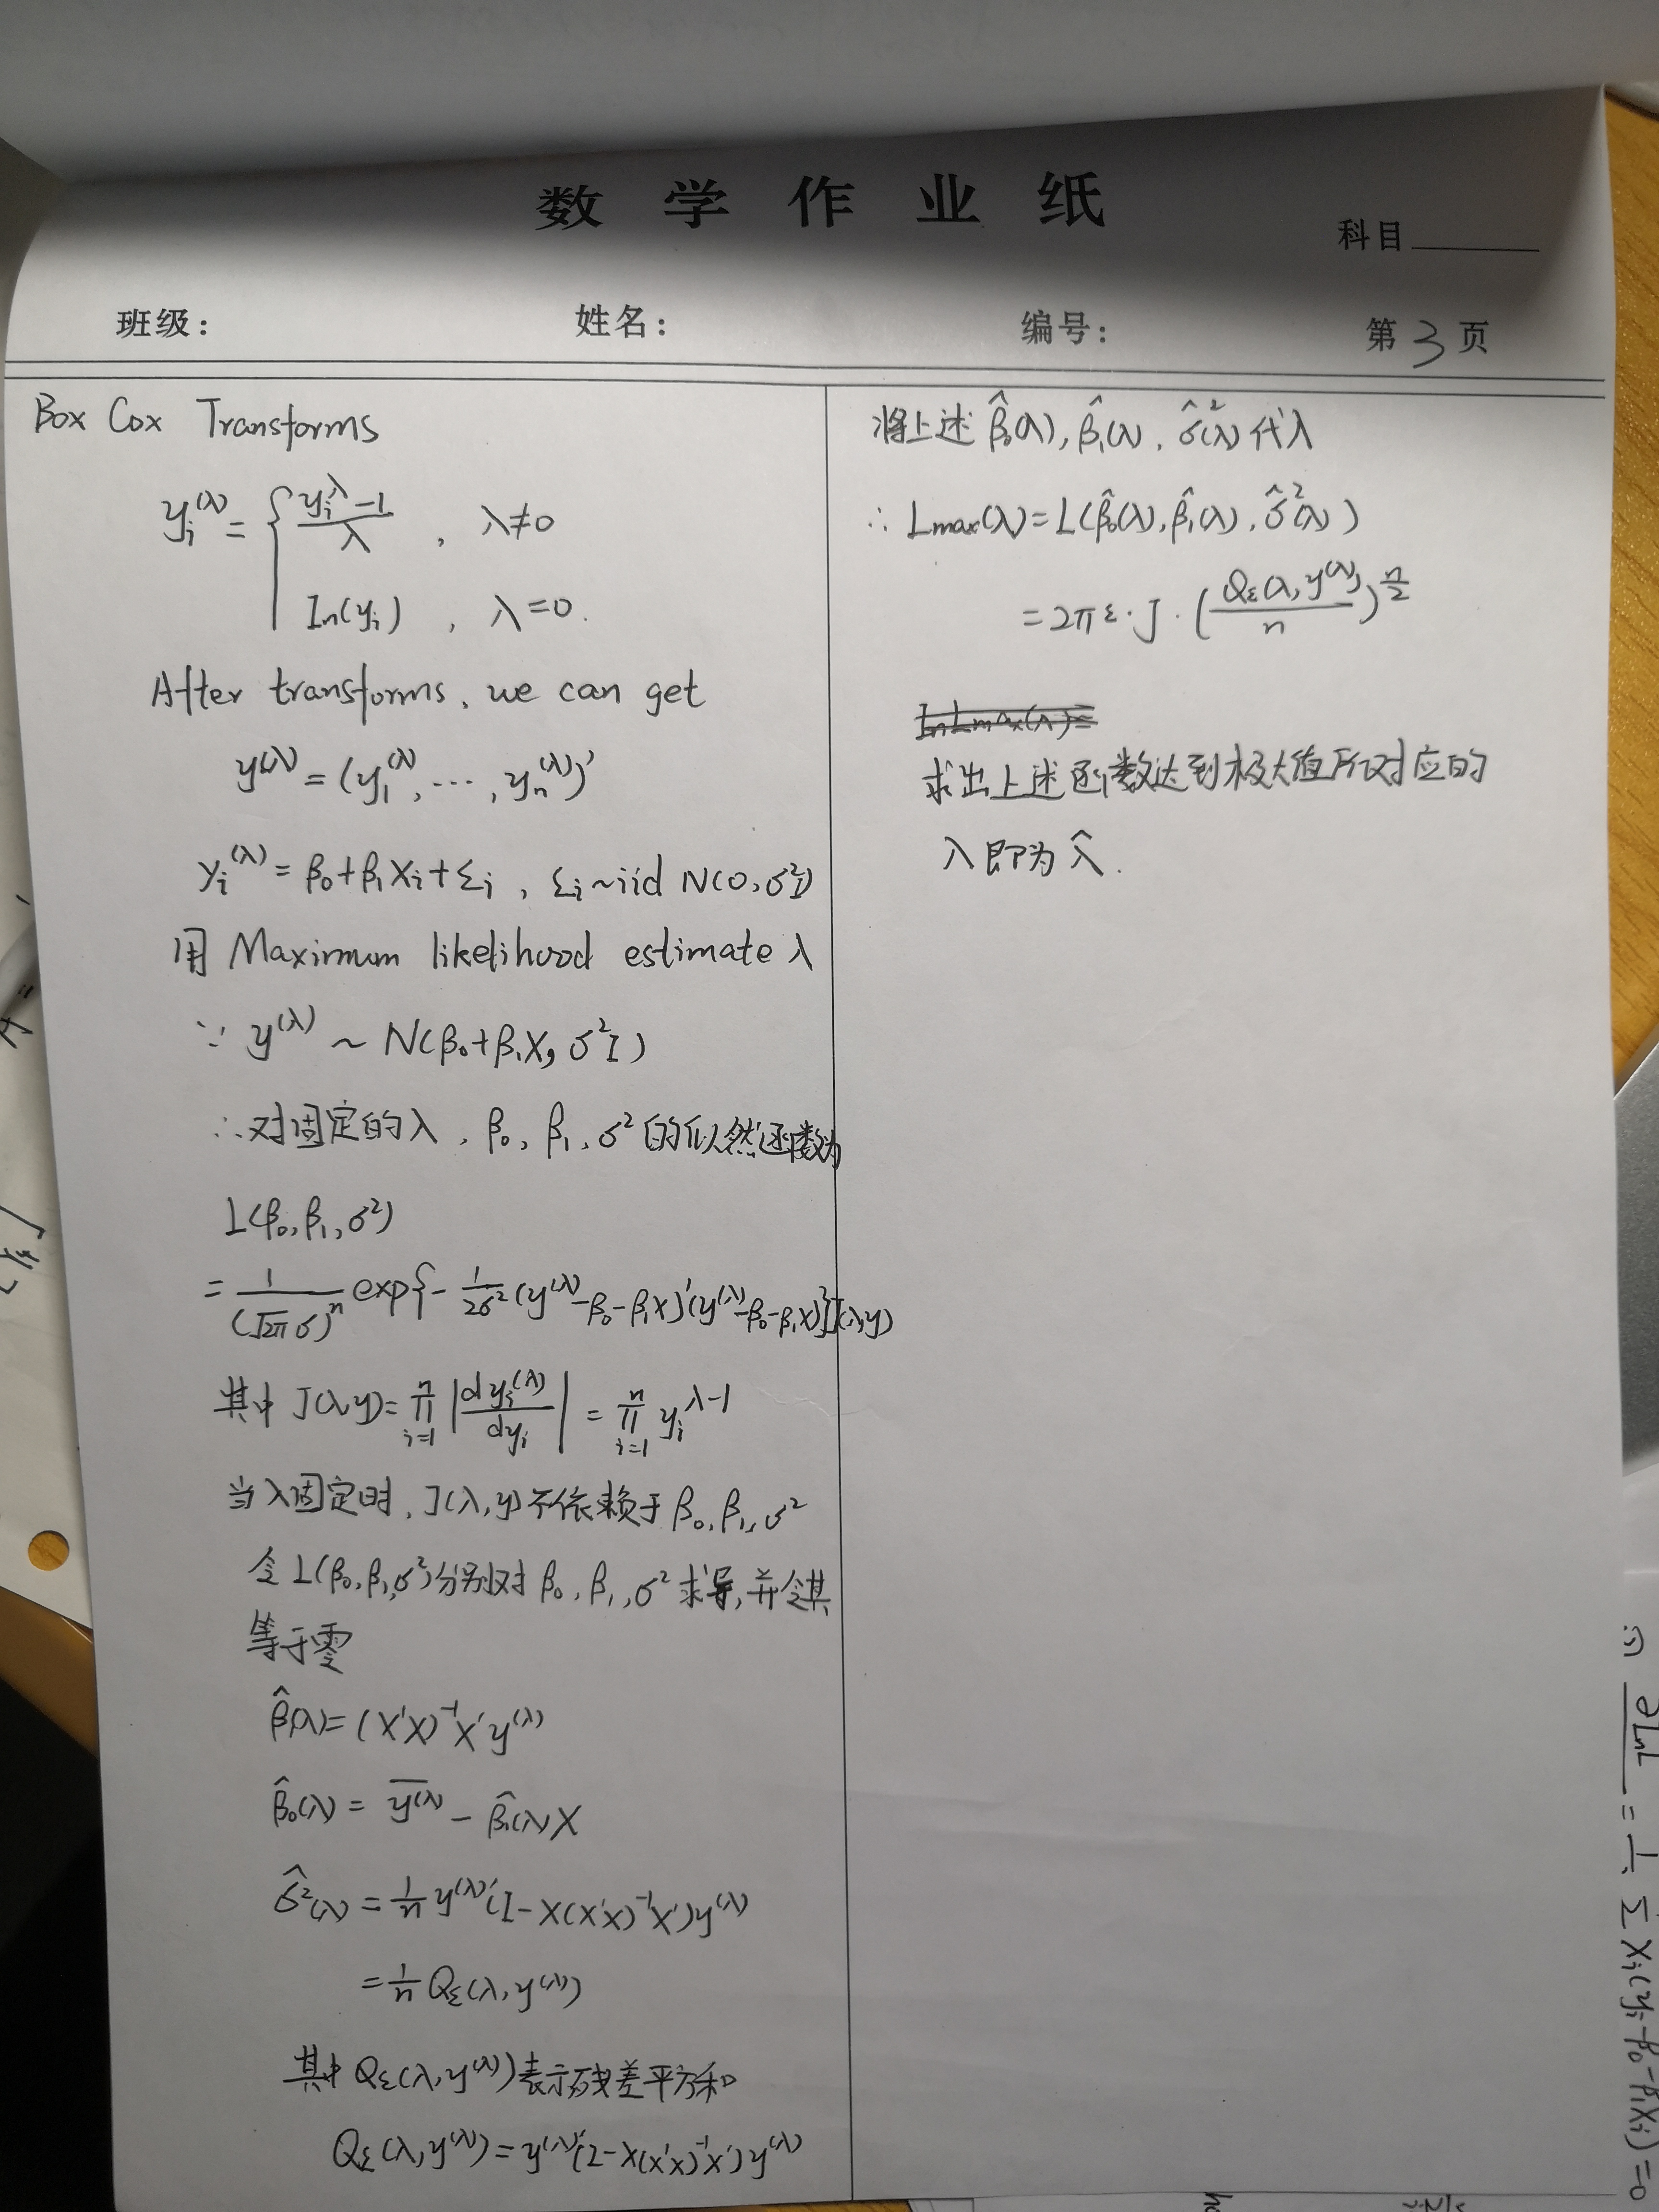 数学作业纸
科目
班级： 姓名： 编号： 第3页
Box Cox Transforms
y_i^(λ) = { (y_i^λ - 1)/λ , λ≠0
ln(y_i) , λ=0.
After transforms, we can get
y^(λ) = (y_1^(λ), ⋯, y_n^(λ))'
y_i^(λ) = β₀+β₁X_i+ε_i , ε_i ~iid N(0, σ²I)
用 Maximum likelihood estimate λ
∵ y^(λ) ~ N(β₀+β₁X, σ²I)
∴对固定的λ, β₀, β₁, σ²的似然函数为
L(β₀, β₁, σ²)
= 1/(√2π σ)^n exp{- 1/2σ² (y^(λ)-β₀-β₁X)'(y^(λ)-β₀-β₁X)}J(λ,y)
其中 J(λ,y)= ∏_{i=1}^n |dy_i^(λ)/dy_i| = ∏_{i=1}^n y_i^{λ-1}
当λ固定时, J(λ,y)不依赖于 β₀, β₁, σ²
令 L(β₀,β₁,σ²)分别对 β₀, β₁, σ² 求导, 并令其
等于零
β̂(λ)= (X'X)^{-1}X'y^(λ)
β̂₀(λ) = \overline{y^(λ)} - β̂₁(λ)X
σ̂²(λ) = 1/n y^(λ)'(I-X(X'X)^{-1}X')y^(λ)
= 1/n Q_ε(λ, y^(λ))
其中 Q_ε(λ, y^(λ))表示残差平方和
Q_ε(λ, y^(λ)) = y^(λ)'(2-X(X'X)^{-1}X')y^(λ)
将上述 β̂₀(λ), β̂₁(λ), σ̂²(λ) 代入
∴ Lmax(λ)=L(β̂₀(λ), β̂₁(λ), σ̂²(λ))
= 2πε·J·(Q_ε(λ, y^(λ))/n)^{n/2}
ln Lmax(λ)=
求出上述函数达到极大值所对应的
λ即为 λ̂.
(i) ∂lnL = 1 Σ X_i(y_i-β₀-β₁X_i)=0